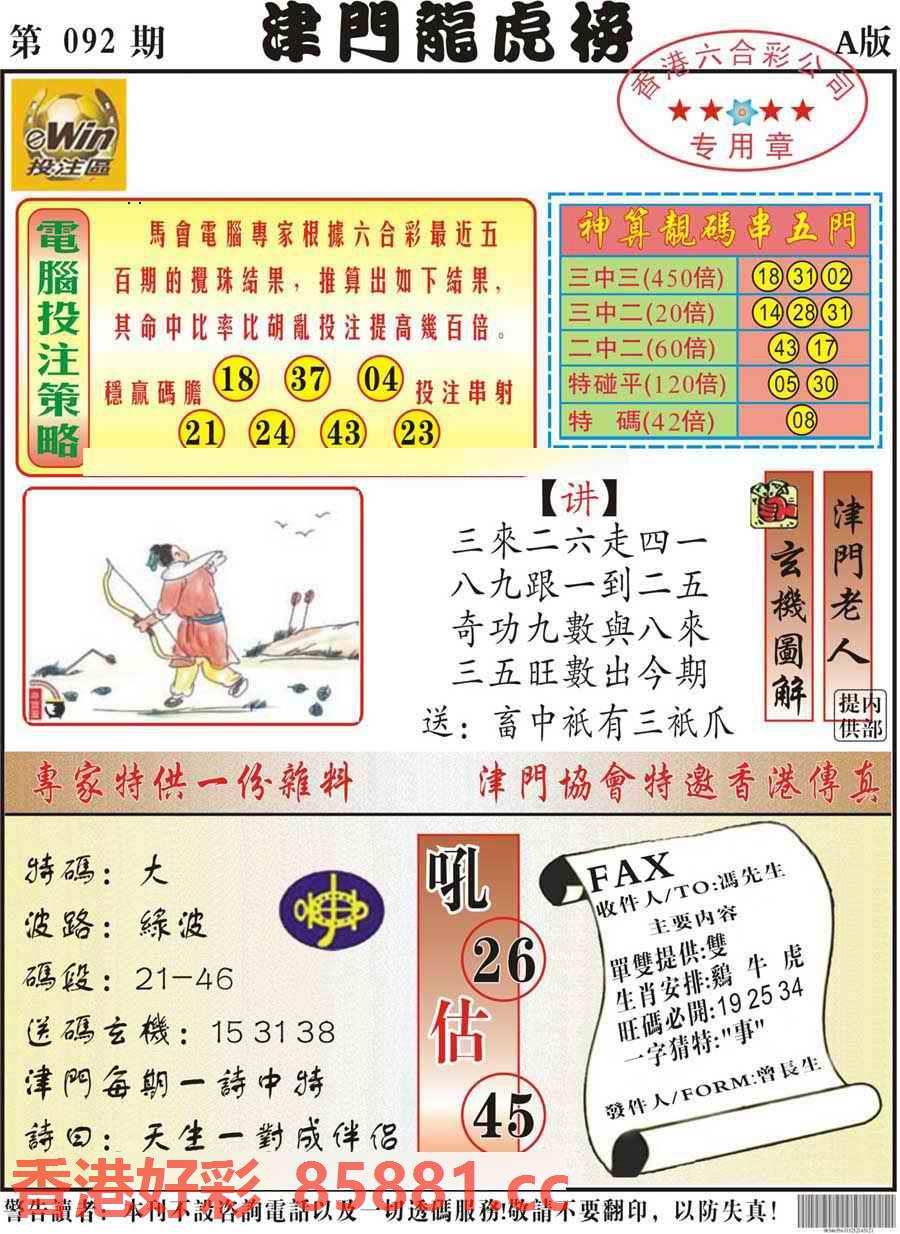 第 092 期
津門龍虎榜
A版
香港六合彩公司
专用章
eWin
投注區
電腦投注策略
馬會電腦專家根據六合彩最近五
百期的攪珠結果，推算出如下結果，
其命中比率比胡亂投注提高幾百倍。
穩贏碼膽 18 37 04 投注串射
21 24 43 23
神算靚碼串五門
三中三(450倍) 18 31 02
三中二(20倍) 14 28 31
二中二(60倍) 43 17
特碰平(120倍) 05 30
特 碼(42倍) 08
【讲】
三來二六走四一
八九跟一到二五
奇功九數與八來
三五旺數出今期
送：畜中祇有三祇爪
玄機圖解
津門老人
内部提供
專家特供一份雜料
津門協會特邀香港傳真
特碼：大
波路：綠波
碼段：21-46
送碼玄機：15 31 38
津門每期一詩中特
詩曰：天生一對成伴侶
吼
26
估
45
FAX
收件人/TO:馮先生
主要内容
單雙提供:雙
生肖安排:鷄 牛 虎
旺碼必開:19 25 34
一字猜特:"事"
發件人/FORM:曾長生
香港好彩 85881.cc
警告讀者：本刊不設咨詢電話以及一切透碼服務!敬請不要翻印，以防失真!